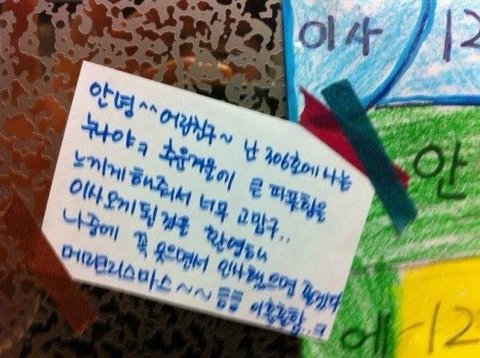 이사 12
안녕^^어린친구~ 난 306호에 사는
누나야ㅋ 추운겨울이 큰 따뜻함을
느끼게 해줘서 너무 고맙구..
이사오게 된걸 환영하니
나중에 꼭 웃으면서 인사했으면 좋겠다
메련리스마스~~ 이웃들
안
에 12